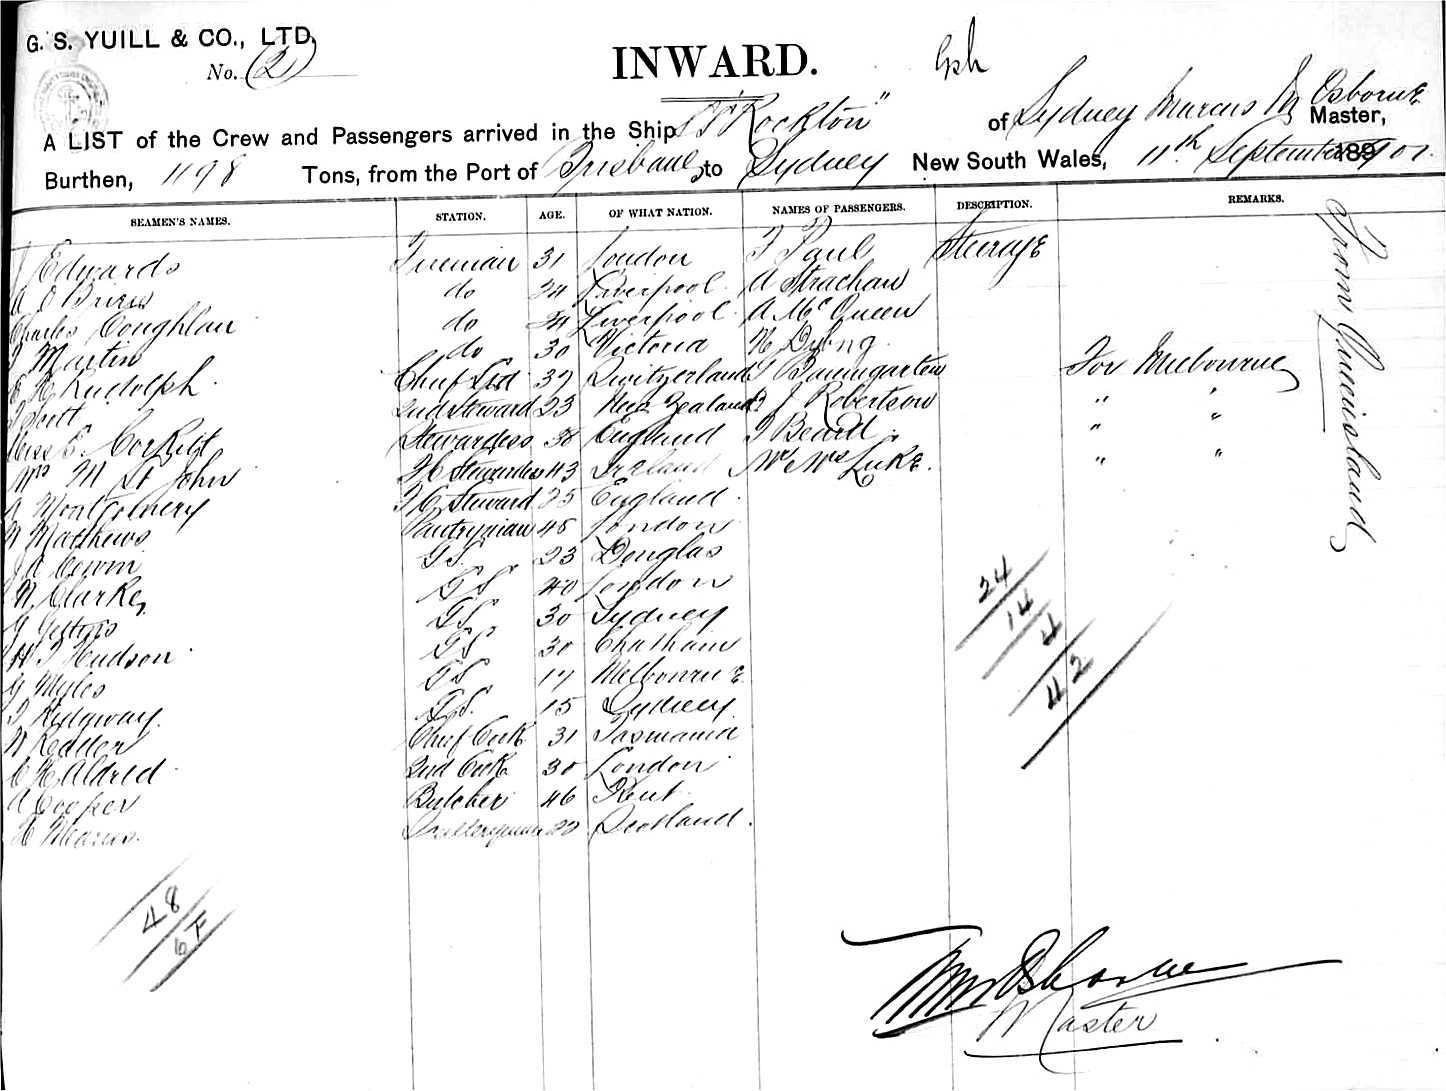 G. S. YUILL & CO., LTD.
No. (2)
INWARD.
A LIST of the Crew and Passengers arrived in the Ship SS "Rockton" of Sydney Marcus M Osborne Master,
Burthen, 1198 Tons, from the Port of Brisbane to Sydney New South Wales, 11th September 1901.
SEAMEN'S NAMES. STATION. AGE. OF WHAT NATION. NAMES OF PASSENGERS. DESCRIPTION. REMARKS.
Edwards Fireman 31 London F Paul Steerage
A O'Brien do 24 Liverpool A Strachan
Charles Coughlan do 34 Liverpool A McQueen
Martin do 30 Victoria N Dybng
E H Rudolph Chief Std 37 Switzerland Baumgarten For Melbourne
Scott 2nd Steward 23 New Zealand J Robertson " "
Miss E. Corkill Stewardess 38 England T Beard " "
Mrs M St John F C Stewardess 43 Ireland Mr Mrs Luke. " "
Montgomery F C Steward 25 England
W Matthews Pantryman 45 London
J A Cowin GS. 23 Douglas
W. Clarke GS 40 London
G GS 30 Sydney
W J Hudson GS 30 Chatham
G Myles GS 17 Melbourne
T Ridgway GS. 15 Sydney
W Kedder Chief Cook 31 Tasmania
C H Aldred 2nd Cook 30 London
A Cooper Butcher 46 Kent
H 22 Scotland.
From Queensland
24
14
4
42
48
6 F
M M Osborne
Master